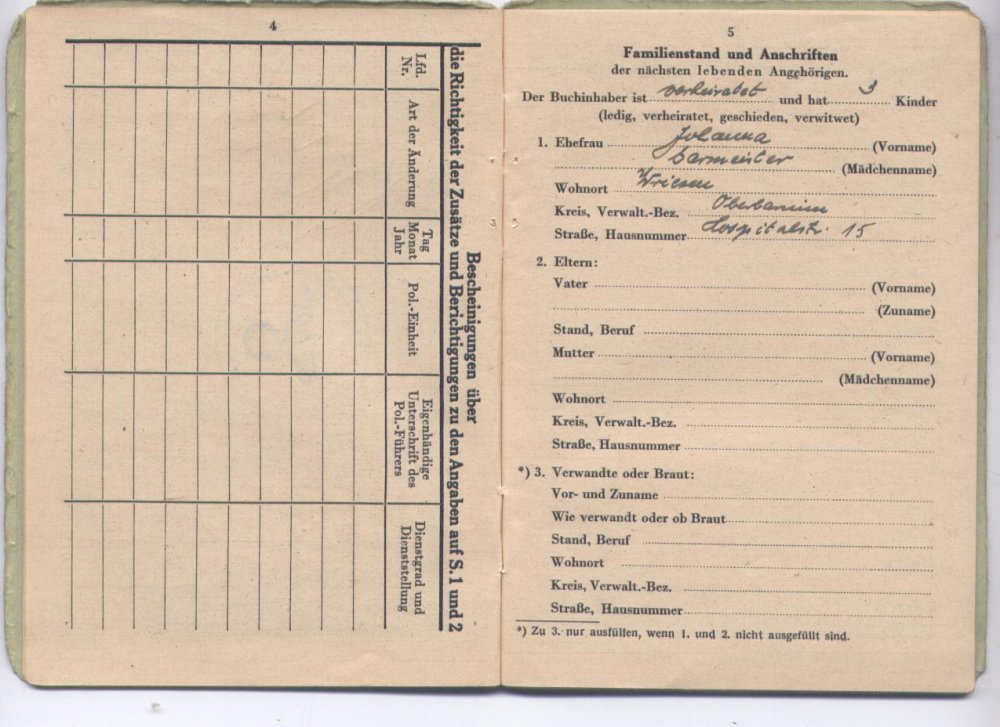 4
Bescheinigungen über
die Richtigkeit der Zusätze und Berichtigungen zu den Angaben auf S. 1 und 2
Lfd. Nr.
Art der Änderung
Tag Monat Jahr
Pol.-Einheit
Eigenhändige Unterschrift des Pol.-Führers
Dienstgrad und Dienststellung
5
Familienstand und Anschriften
der nächsten lebenden Angehörigen.
Der Buchinhaber ist verheiratet und hat 3 Kinder
(ledig, verheiratet, geschieden, verwitwet)
1. Ehefrau Johanna (Vorname)
(Mädchenname)
Wohnort Wriezen
Kreis, Verwalt.-Bez. Oberbarnim
Straße, Hausnummer Hospitalstr. 15
2. Eltern:
Vater (Vorname)
(Zuname)
Stand, Beruf
Mutter (Vorname)
(Mädchenname)
Wohnort
Kreis, Verwalt.-Bez.
Straße, Hausnummer
*) 3. Verwandte oder Braut:
Vor- und Zuname
Wie verwandt oder ob Braut
Stand, Beruf
Wohnort
Kreis, Verwalt.-Bez.
Straße, Hausnummer
*) Zu 3. nur ausfüllen, wenn 1. und 2. nicht ausgefüllt sind.